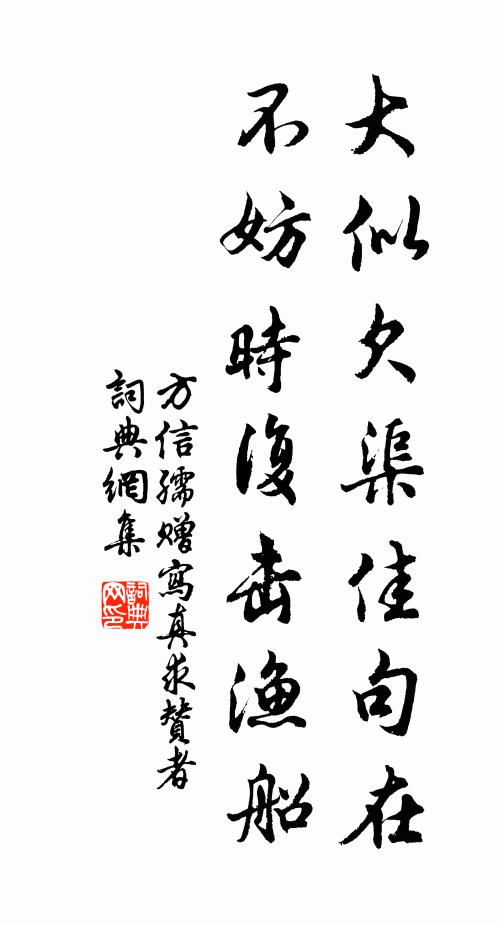 大似欠渠佳句在
不妨時復击漁船
方信孺贈寫真求贊者
詞典網集
詞典
网印